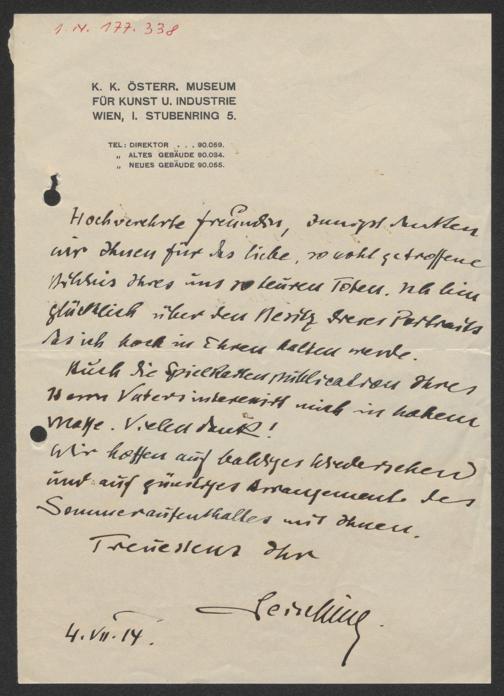 I. N. 177.338
K. K. ÖSTERR. MUSEUM
FÜR KUNST U. INDUSTRIE
WIEN, I. STUBENRING 5.
TEL: DIREKTOR . . . 90.059.
„ ALTES GEBÄUDE 90.034.
„ NEUES GEBÄUDE 90.055.
Hochverehrte Freundin, innigst danken
wir Ihnen für das liebe, so wohl getroffene
Bildnis Ihres uns so teuren Toten. Ich bin
glücklich über den Besitz dieses Portraits
das ich hoch in Ehren halten werde.
Auch die Spielkartenpublication Ihres
Herrn Vaters interessirt mich in hohem
Masse. Vielen Dank!
Wir hoffen auf baldiges Wiedersehen
und auf günstiges Arrangement des
Sommeraufenthaltes mit Ihnen.
Treuestens Ihr
Leisching.
4. VII. 14.